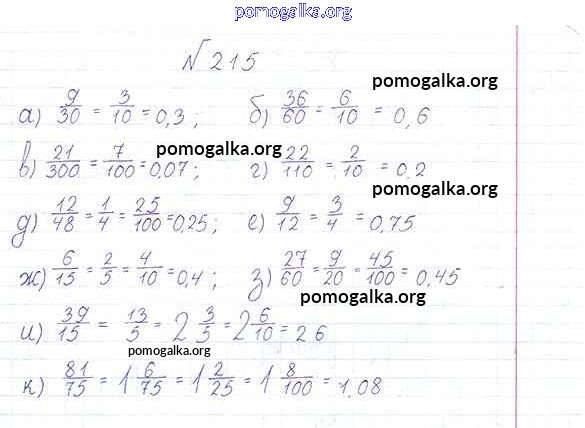 pomogalka.org
№ 215
pomogalka.org
а) 9/30 = 3/10 = 0,3; б) 36/60 = 6/10 = 0,6
pomogalka.org
в) 21/300 = 7/100 = 0,07; г) 22/110 = 2/10 = 0,2
pomogalka.org
д) 12/48 = 1/4 = 25/100 = 0,25; е) 9/12 = 3/4 = 0,75
ж) 6/15 = 2/5 = 4/10 = 0,4; з) 27/60 = 9/20 = 45/100 = 0,45
pomogalka.org
и) 39/15 = 13/5 = 2 3/5 = 2 6/10 = 2 6
pomogalka.org
к) 81/75 = 1 6/75 = 1 2/25 = 1 8/100 = 1,08